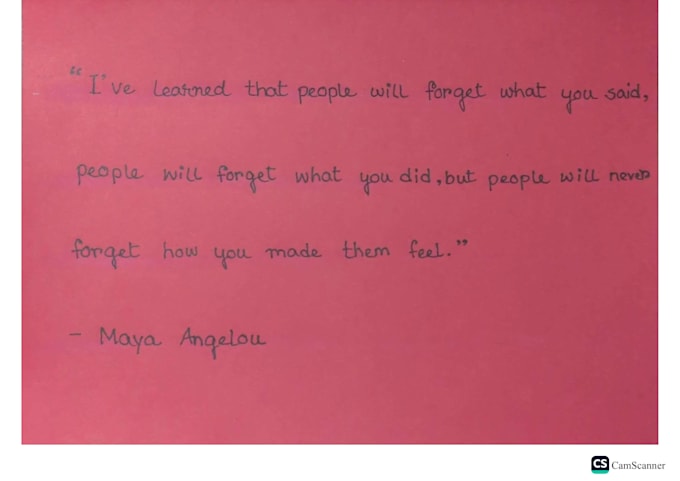 "I've learned that people will forget what you said,
people will forget what you did, but people will never
forget how you made them feel."
- Maya Angelou
CS CamScanner